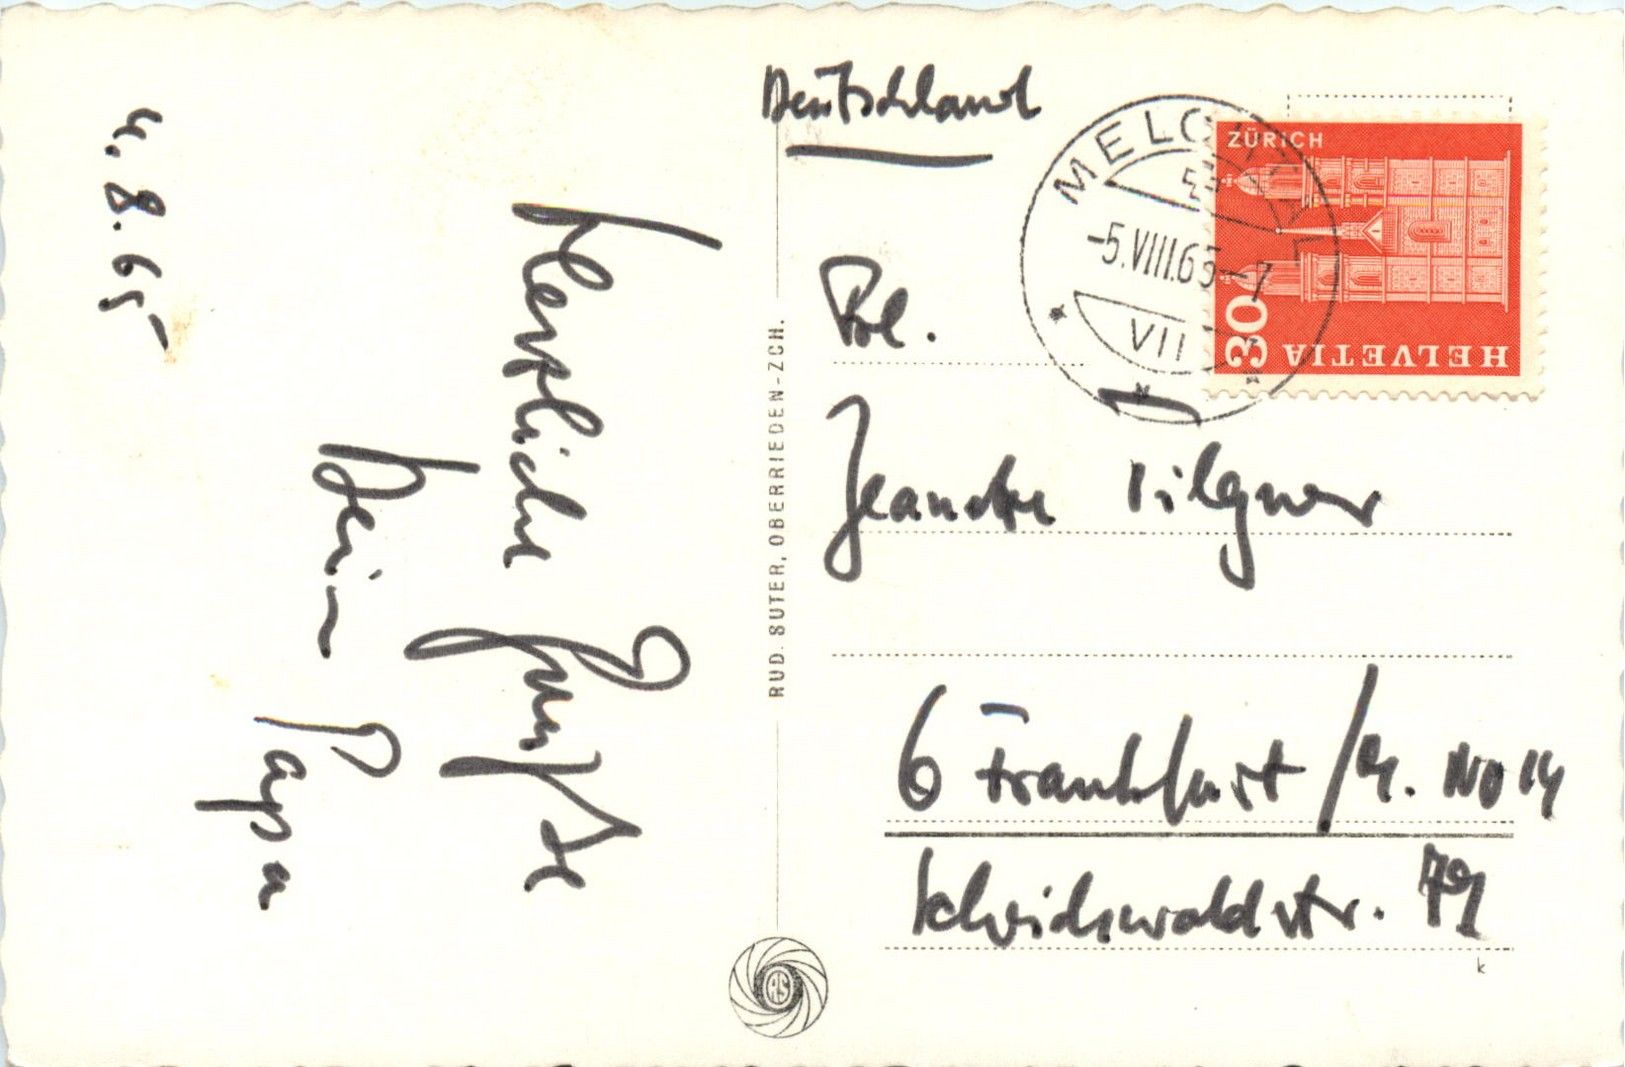 4. 8. 65
Herzliche Grüße
Dein Papa
RUD. SUTER, OBERRIEDEN-ZCH.
Deutschland
MELCHTAL
-5.VIII.65-7
VII
ZÜRICH
30
HELVETIA
Jeanette Pilgner
6 Frankfurt/M. NO 14
Scheidswaldstr.
k